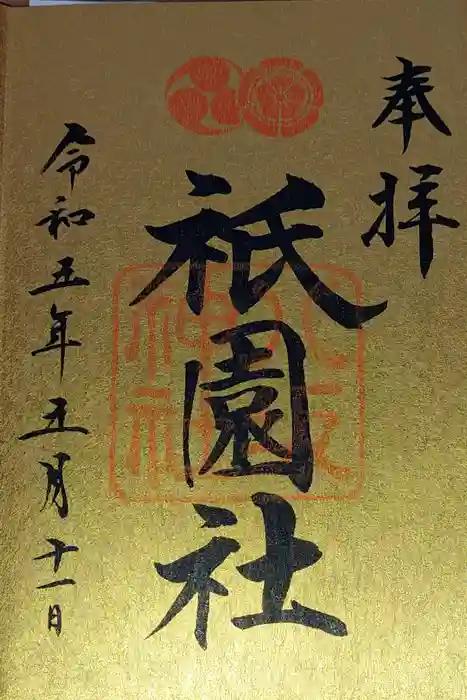 奉拝
祇園社
八坂神社
令和五年五月十一日